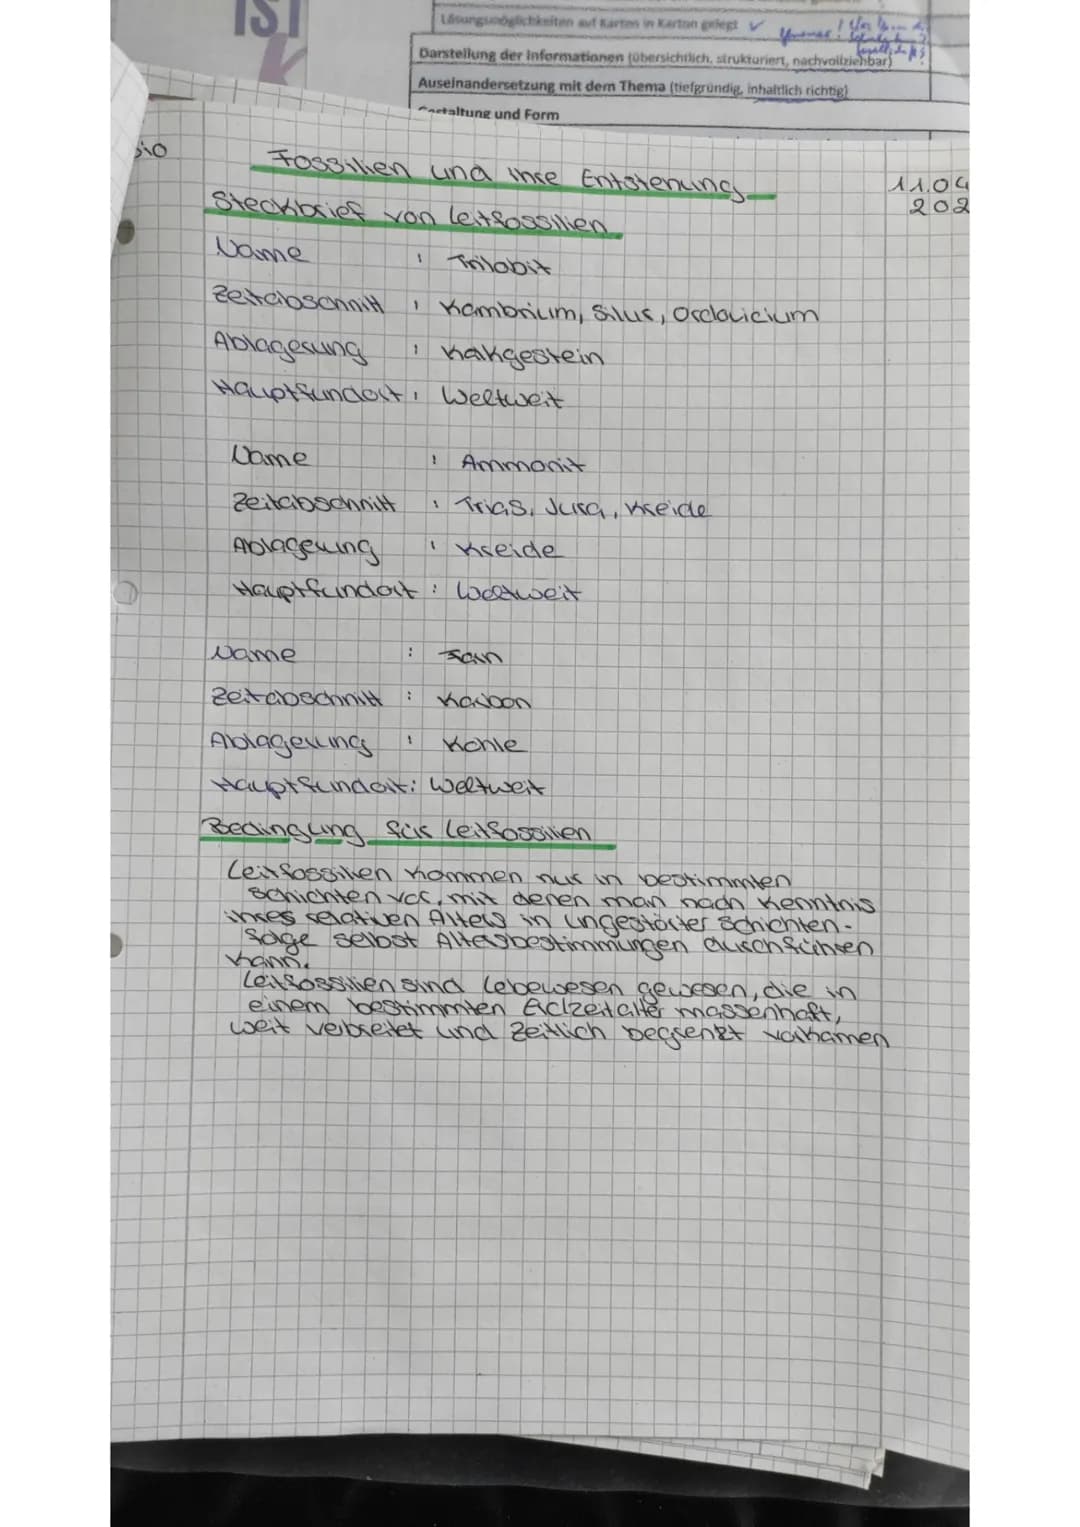 IST
Lösungsmöglichkeiten auf Karten in Karton gelegt ✓
Darstellung der Informationen (übersichtlich, strukturiert, nachvollziehbar)
Auseinandersetzung mit dem Thema (tiefgründig, inhaltlich richtig)
Gestaltung und Form
Bio
Fossilien und ihre Entstehung
11.04
202
Steckbrief von Leitfossilien
Name : Trilobit
Zeitabschnitt : Kambrium, Silur, Ordovicium
Ablagerung : Kalkgestein
Hauptfundort : Weltweit
Name : Ammonit
Zeitabschnitt : Trias, Jura, Kreide
Ablagerung : Kreide
Hauptfundort : Weltweit
Name : Farn
Zeitabschnitt : Karbon
Ablagerung : Kohle
Hauptfundort : Weltweit
Bedingung für Leitfossilien
Leitfossilien kommen nur in bestimmten
Schichten vor, mit deren man nach Kenntnis
ihres relativen Alters in ungestörter Schichten-
folge selbst Altersbestimmungen durchführen
kann.
Leitfossilien sind Lebewesen gewesen, die in
einem bestimmten Erdzeitalter massenhaft,
weit verbreitet und zeitlich begrenzt vorkamen